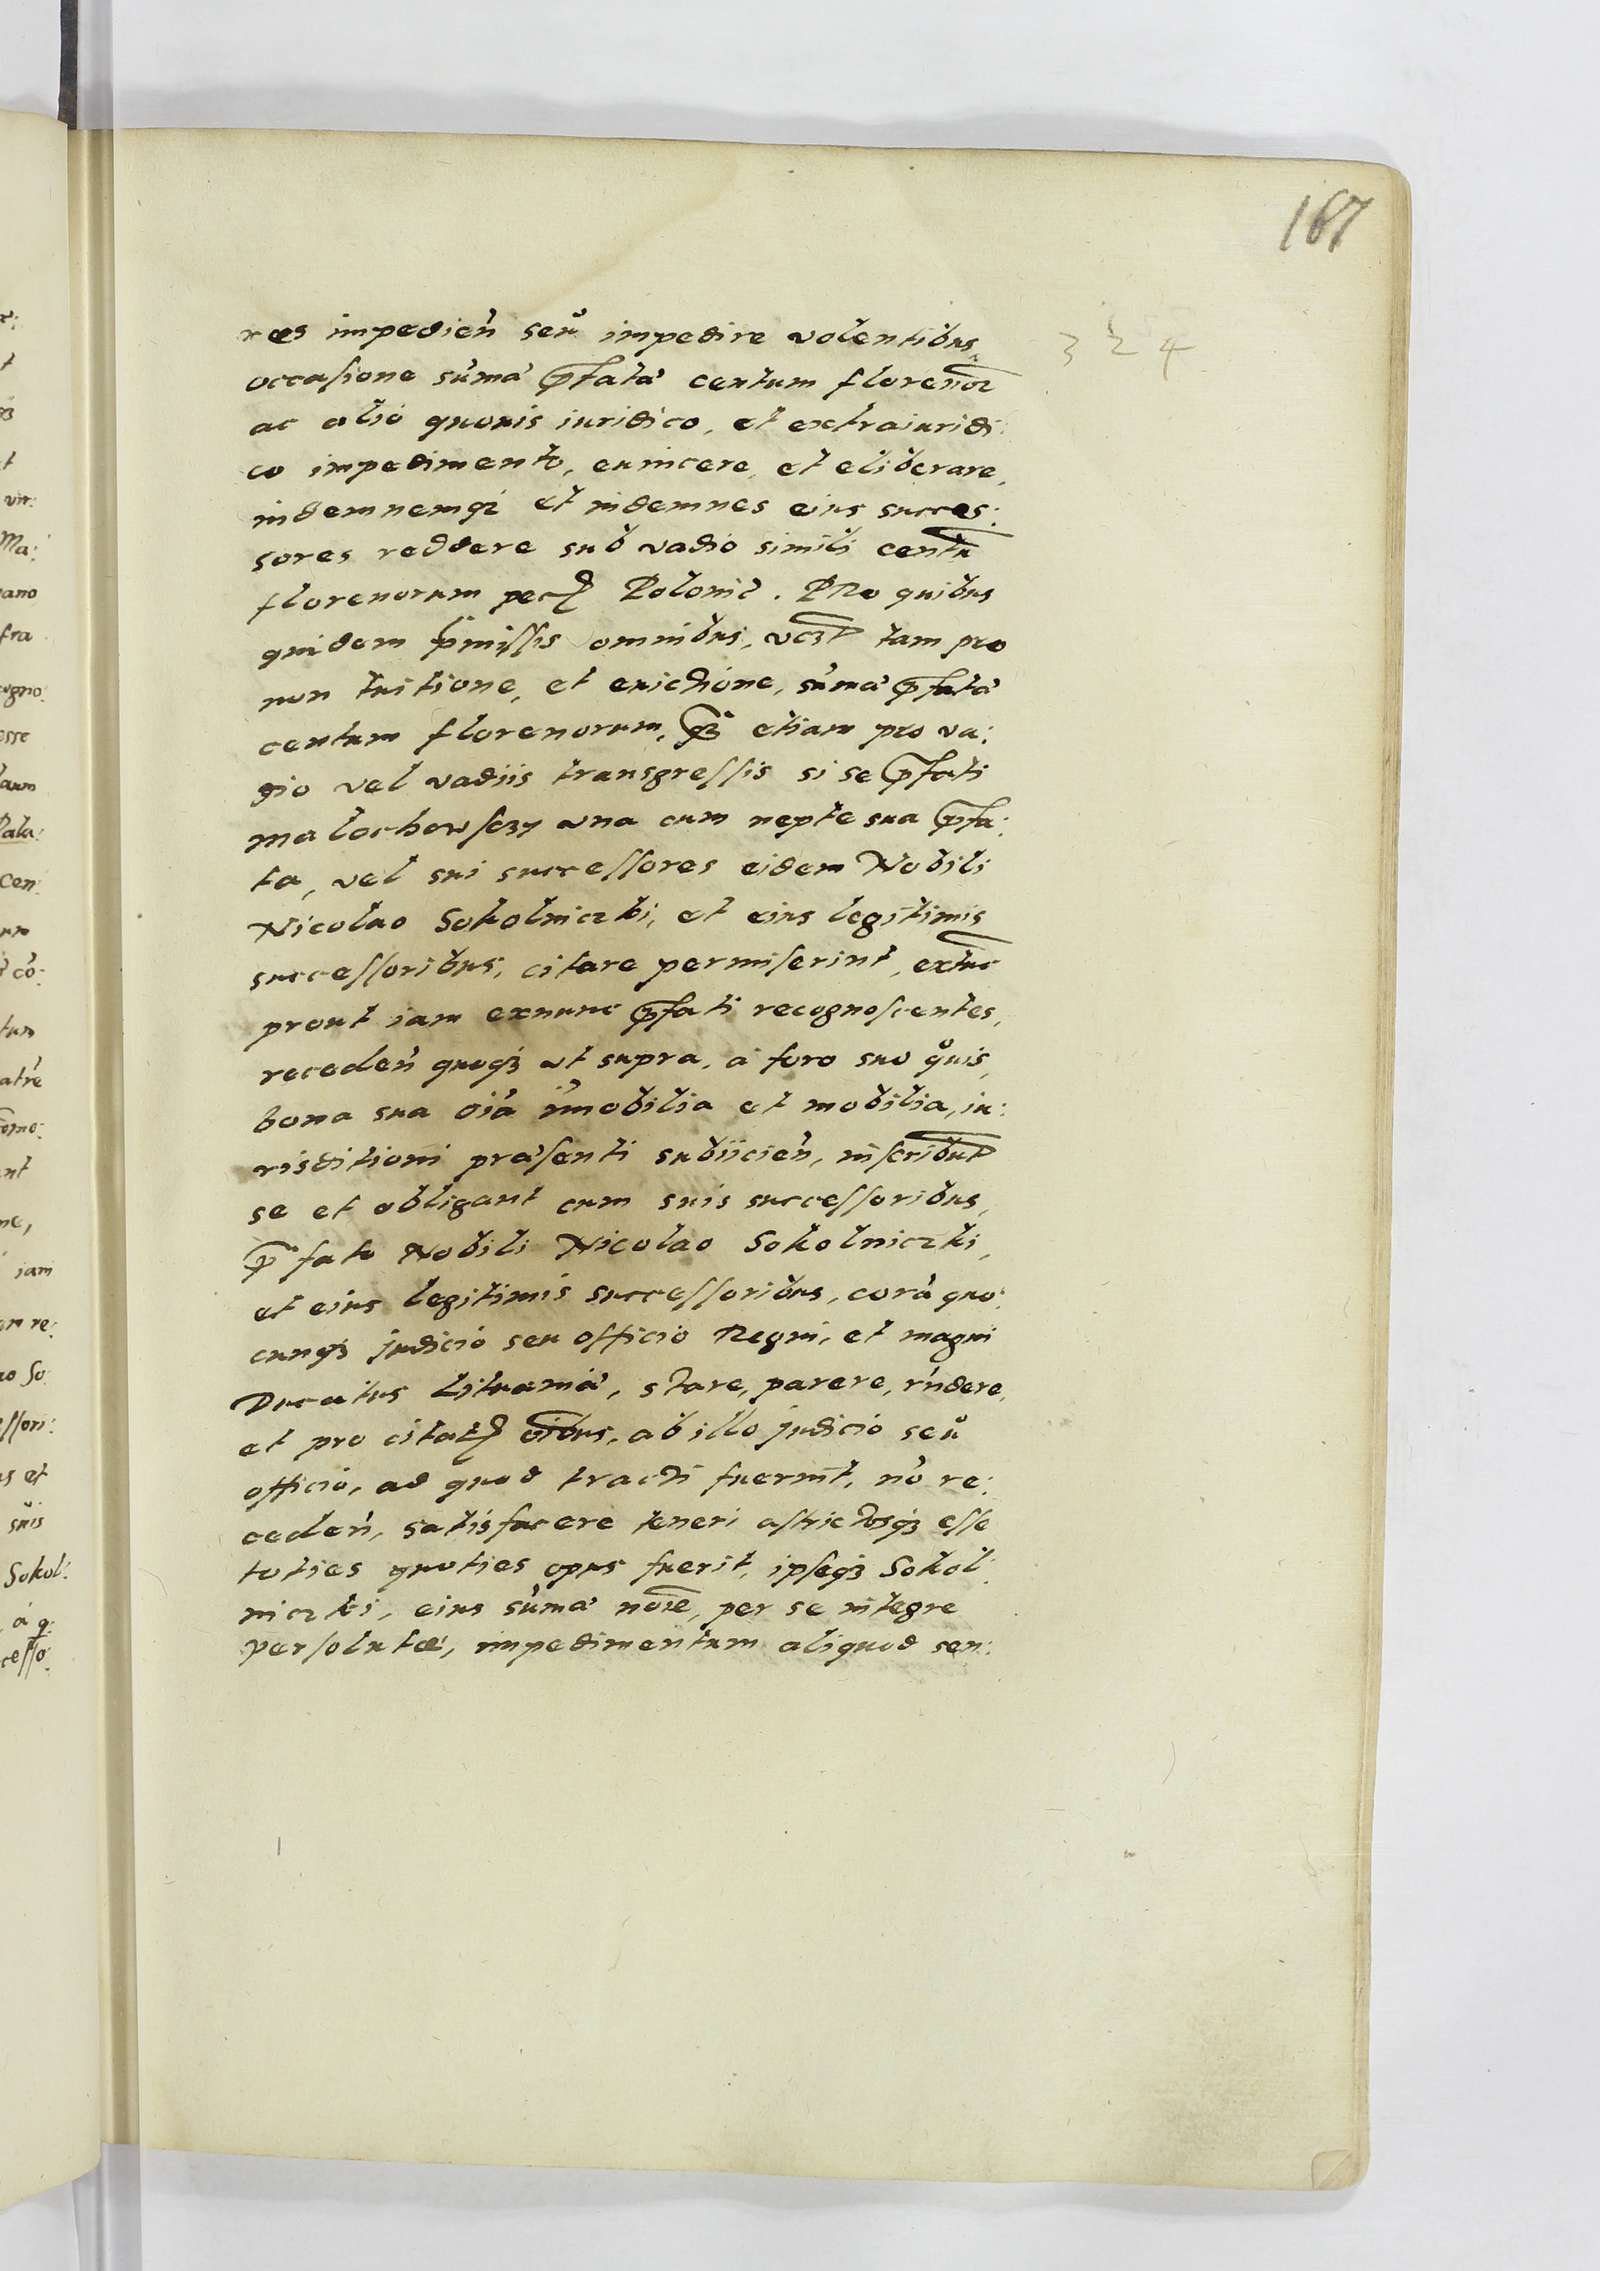 167
324
res impedien̄ seŭ impedire volentibus,
occasione sum̄a p̄fata centum florenor̄
ac alio quouis iuridico, et extraiuridi:
co impedimento, euincere, et eliberare,
indemnemq3 et indemnes eius succes:
sores reddere sub vadio simili centū
florenorum pec Polonic. PRo quibus
quidem p̄missis omnibus, vc3t tam pro
non tuitione, et euictione, sum̄a p̄fata
centum florenorum, q̄3 etiam pro va:
dio vel vadiis transgressis si se p̄fati
malochowsc3y una cum nepte sua p̄fa:
ta, vel sui successores eidem Nobili
Nicolao Sokolniczki, et eius legitimis
successoribus, citare permiserint, extūc
prout iam exnunc p̄fati recognoscentes,
receden̄ quoq3 ut supra, à foro suo quĭs,
bona sua oīa im̄obilia et mobilia, iu:
risditioni præsenti subiicien̄, inscribūt
se et obligant cum suis successoribus,
p̄fato Nobili Nicolao Sokolniczki,
et eius legitimis successoribus, corā quo:
cunq3 judicio seu officio Regni, et magni
Ducatus Lituaniæ, stare, parere, rn̄dere,
et pro citat oībus, ab illo judicio seŭ
officio, ad quod tracti fuerint, nō re:
ceden̄, satisfacere teneri astrictosq3 esse
toties quoties opus fuerit, ipseq3 Sokol:
niczki, eius sum̄a noīe, per se integre
persolutæ, impedimentum aliquod sen: